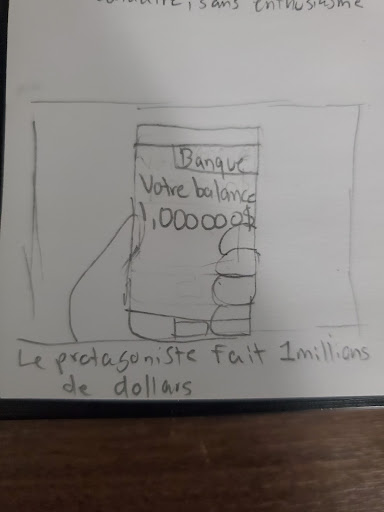 sans enthusiasme
Banque
Votre balance
1,000000$
Le protagoniste fait 1millions
de dollars